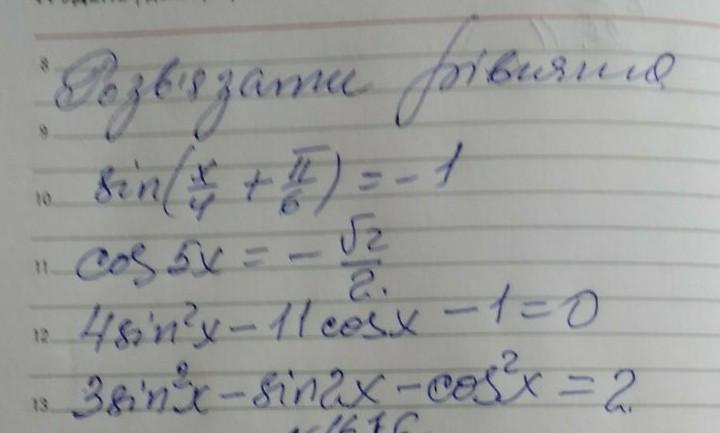 8 Розв'язати рівняння
9
10 sin(x/4 + π/6) = -1
11 cos 5x = - √2/2.
12 4sin²x - 11cosx - 1 = 0
13 3sin²x - sin2x - cos²x = 2